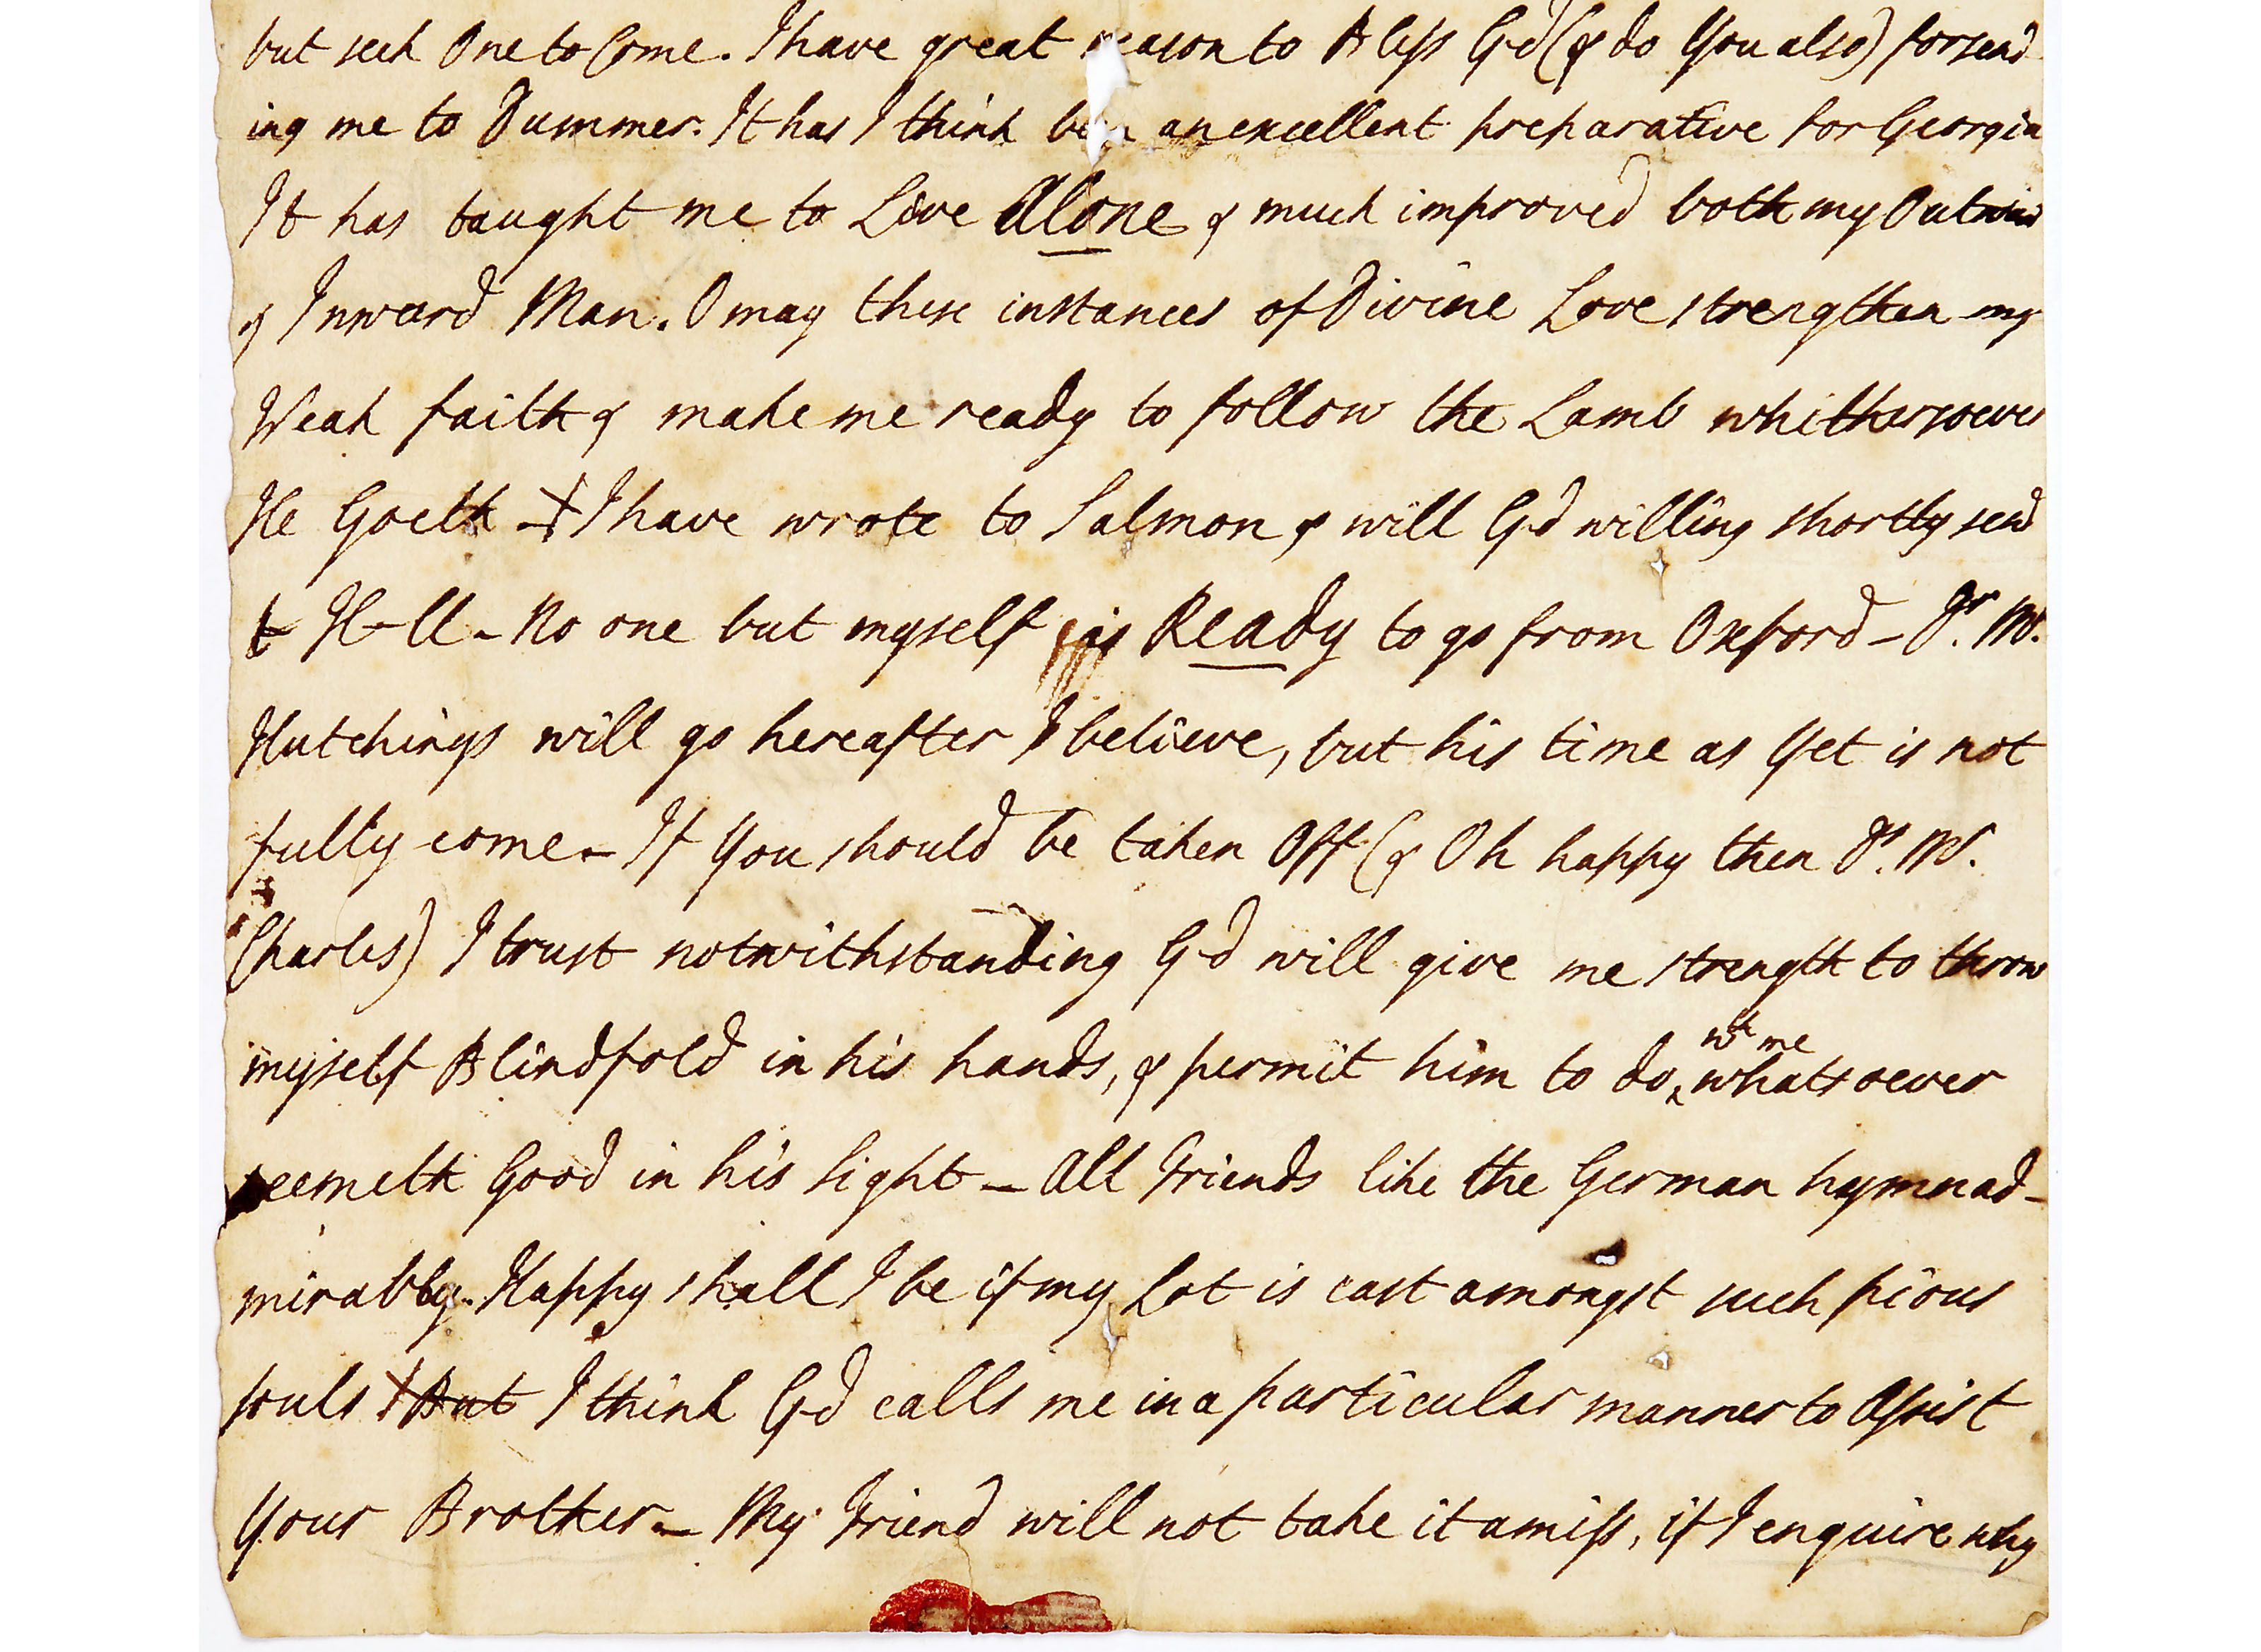 but seek One to Come. I have great reason to Bless G-d (& do You also) for send-
ing me to Dummer. It has I think been an excellent preparative for Georgia
It has taught me to Live Alone & much improved both my Outward
& Inward Man. O may these instances of Divine Love strengthen my
Weak faith & make me ready to follow the Lamb whithersoever
He Goeth I have wrote to Salmon & will G-d willing shortly send
to H-ll - No one but myself is Ready to go from Oxford - Dr. Mr.
Hutchings will go hereafter I believe, but his time as Yet is not
fully come - If You should be taken Off (& Oh happy then Dr. Mr.
Charles) I trust notwithstanding G-d will give me strength to throw
myself Blindfold in his hands, & permit him to do wth me whatsoever
seemeth Good in his Sight - All Friends like the German hymn ad-
mirably. Happy shall I be if my Lot is cast amongst such pious
souls But I think G-d calls me in a particular manner to Assist
Your Brother - My Friend will not take it amiss, if I enquire why